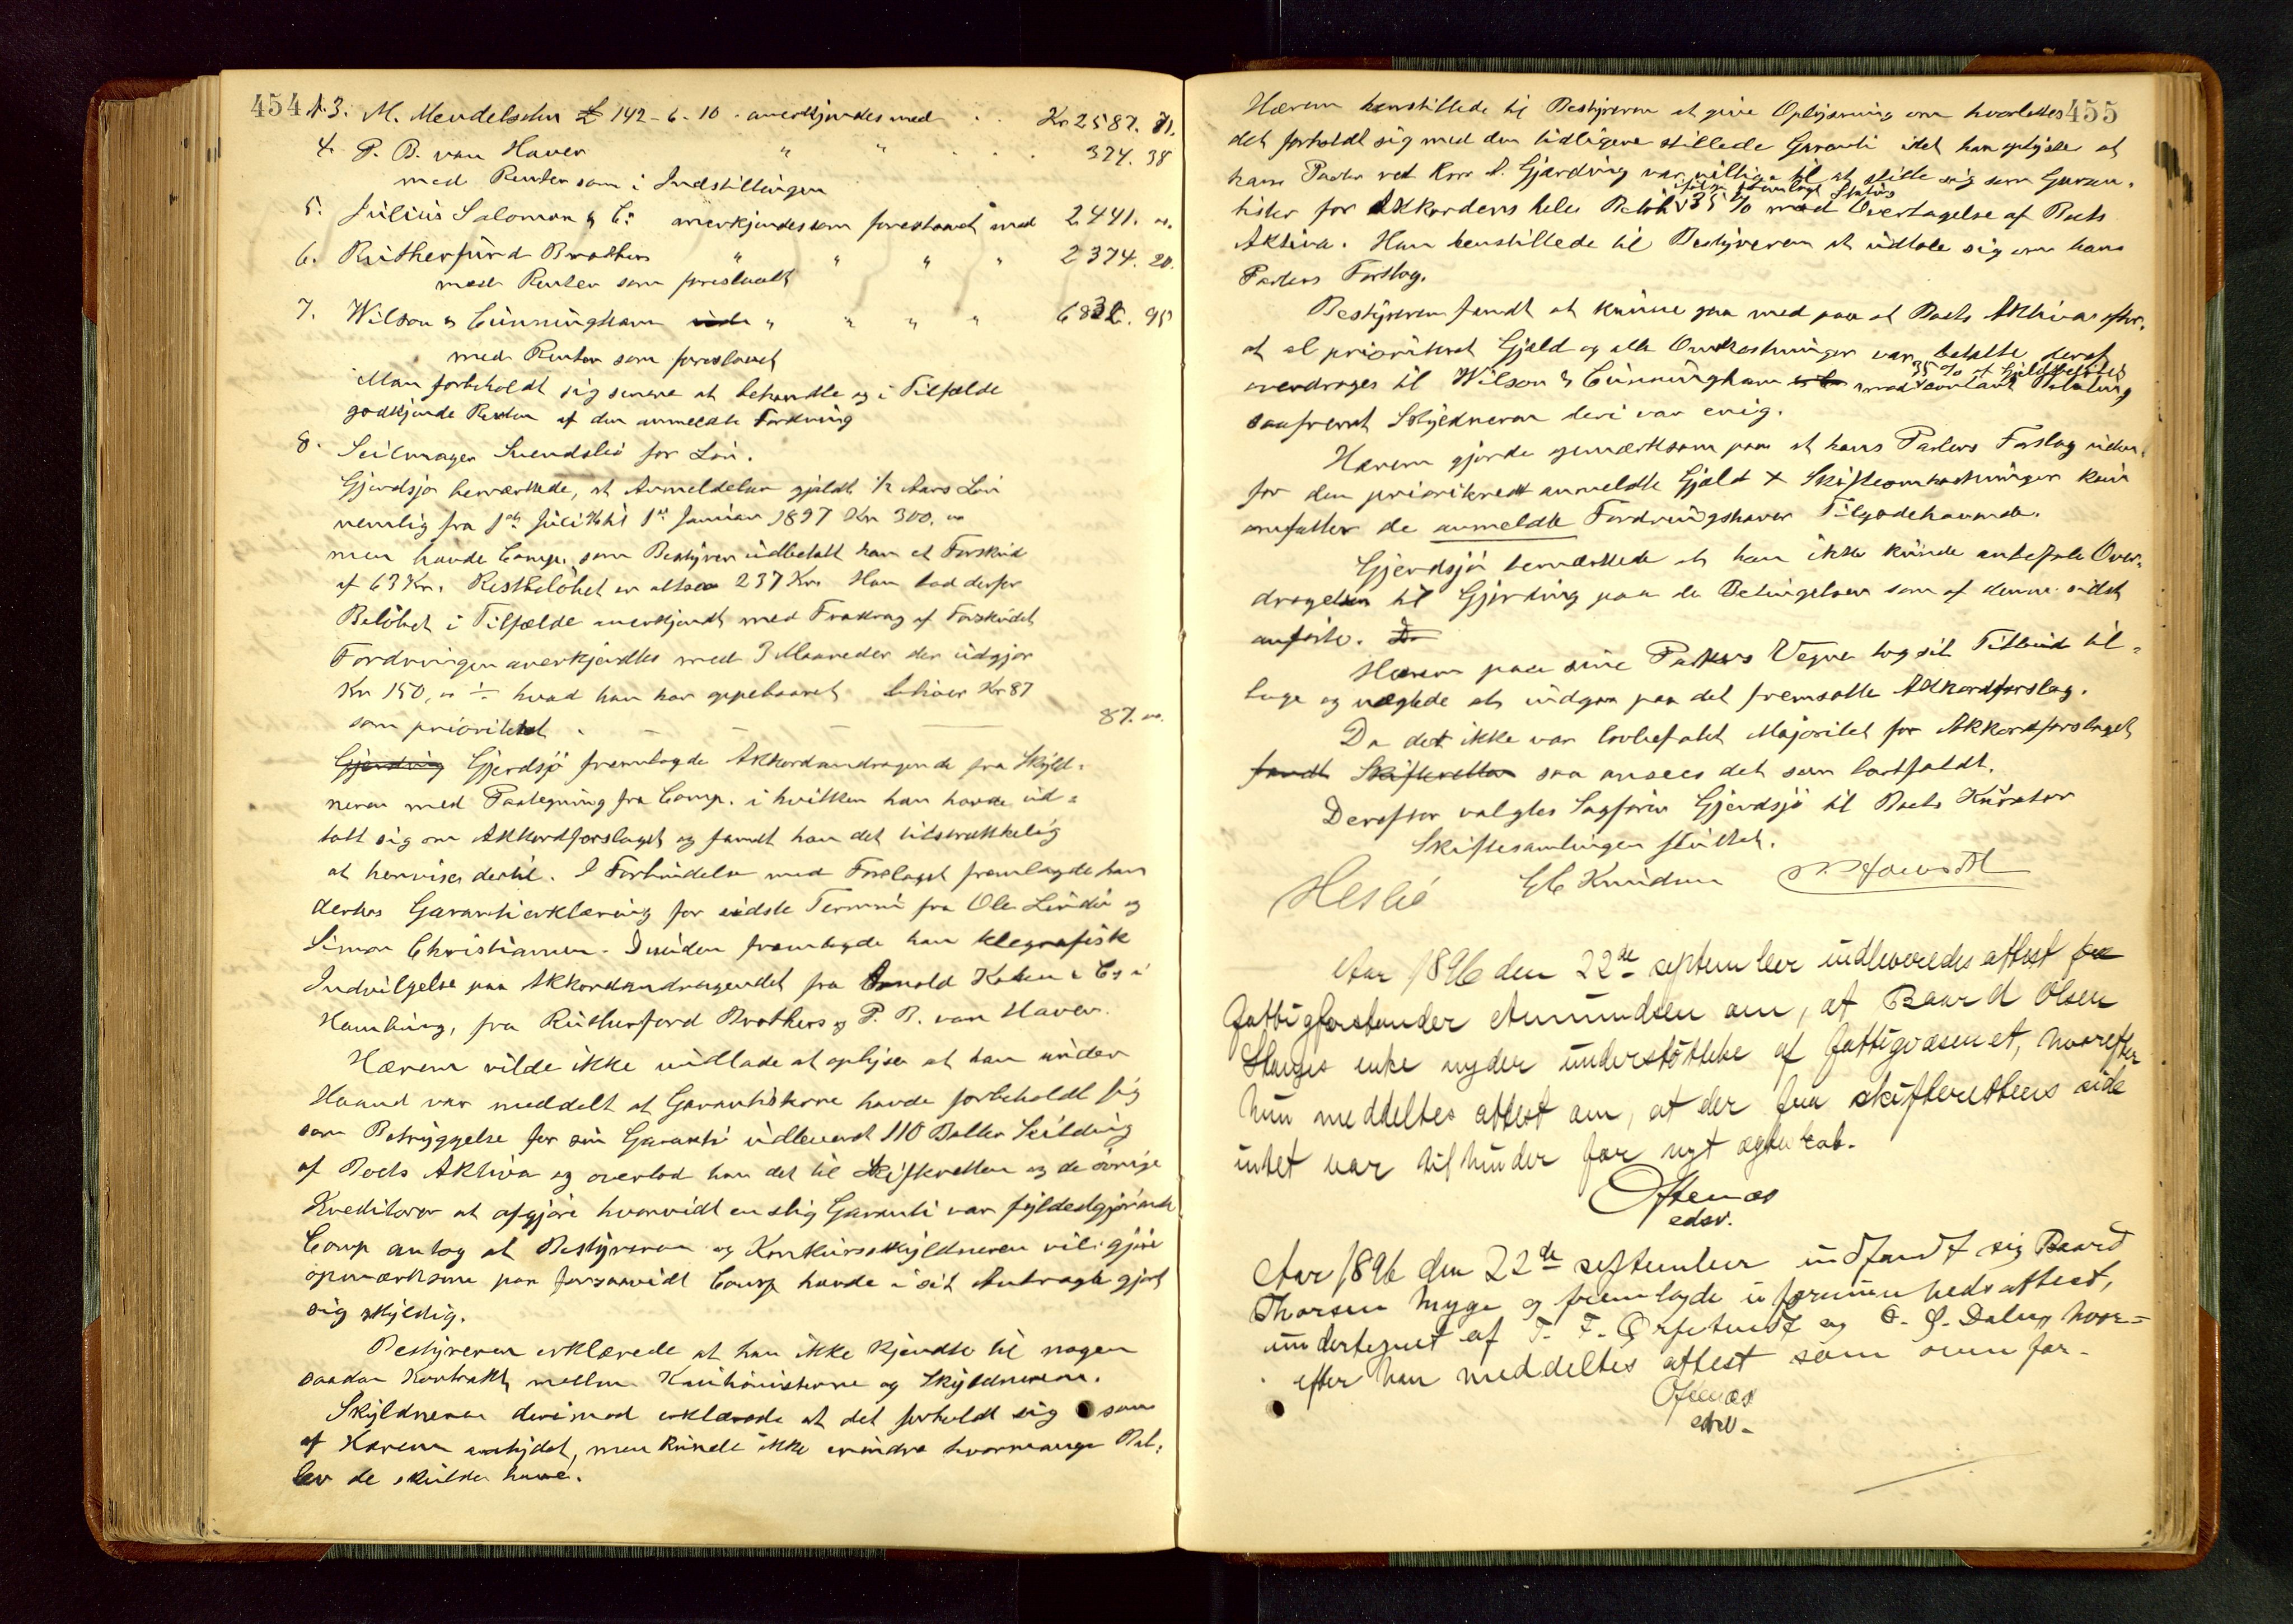 454
N. 3. M. Mendelsohn £ 142-6-10. anerkjendes med . . Kr 2587. 71.
4. P. B. van Haver " " . . . 374. 38
med Renter som i Indstillingen
5. Julius Salomon & Co anerkjendes som foreslaaet med 2441. "
6. Rutherfurd Brothers " " " " 2374. 20.
med Renter som foreslaaet
7. Wilson & Cunningham " " " " 6832. 95
med Renter som foreslaaet
Man forbeholdt sig senere at behandle og i Tilfælde
godkjende Resten af den anmeldte Fordring
8. Seilmager Svendslie for Løn.
Gjerdsjø bemærkede, at Anmeldelsen gjaldt 1/2 Aars Løn
nemlig fra 1ste Juli 96 til 1ste Januar 1897 Kr 300. "
men havde Comp. som Bestyrer udbetalt ham et Forskud
af 63 Kr. Restbeløbet er altsaa 237 Kr. Han bad derfor
Beløbet i Tilfælde anerkjendt med Fradrag af Forskudet
Fordringen anerkjendtes med 3 Maaneder der udgjør
Kr 150, " ÷ hvad han har oppebaaret bliver Kr 87
som prioriteret . — — — 87. "
Gjerding Gjerdsjø fremlagde Akkordandragende fra Skyld-
neren med Paategning fra Comp. i hvilken han havde ud-
talt sig om Akkordforslaget og fandt han det tilstrækkelig
at henvise dertil. I Forbindelse med Forslaget fremlagde han
derhos Garantierklæring for sidste Termin fra Ole Lindø og
Simon Christiansen. Desuden fremlagde han telegrafisk
Indvilgelse paa Akkordandragendet fra Arnold Kohn & Co i
Hamburg, fra Rutherford Brothers og P. B. van Haver.
Hærem vilde ikke undlade at oplyse at han under
Haand var meddelt at Garantisterne havde forbeholdt sig
som Betryggelse for sin Garanti udleveret 110 Baller Seildug
af Boets Aktiva og overlod han det til Skifteretten og de øvrige
Kreditorer at afgjøre hvorvidt en slig Garanti var fyldestgjørende
Comp antog at Bestyreren og Konkursskyldneren vil gjøre
opmærksom paa forsaavidt Comp havde i sit Andragende gjort
sig skyldig.
Bestyreren erklærede at han ikke kjendte til nogen
saadan Kontrakt mellem Kautionisterne og Skyldneren.
Skyldneren derimod erklærede at det forholdt sig som
af Hærem antydet, men kunde ikke erindre hvormange Bal-
ler de skulde have.
455
Hærem henstillede til Bestyreren at give Oplysning om hvorledes
det forholdt sig med den tidligere stillede Garanti idet han oplyste at
hans Parter ved Krr A. Gjærding var villige til at stille sig som Garan-
tister for Akkordens hele Beløb ifølge fremlagt Status 35 % mod Overtagelse af Boets
Aktiva. Han henstillede til Bestyreren at udtale sig om hans
Parters Forslag.
Bestyreren fandt at kunne gaa med paa at Boets Aktiva efter
at al prioriteret Gjæld og alle Omkostninger var betalte deraf
overdrages til Wilson & Cunningham mod 35 % af Gjeldsbeløbet contant Betaling
saafremt Skyldneren deri var enig.
Hærem gjorde opmærksom paa at hans Parters Forslag uden-
for den prioriteret anmeldte Gjæld + Skifteomkostninger kun
omfatter de anmeldte Fordringshaver Tilgodehavende.
Gjerdsjø bemærkede at han ikke kunde anbefale Over-
dragelsen til Gjerding paa de Betingelser som af denne sidst
anførte.
Hærem paa sine Parters Vegne tog sit Tilbud til-
bage og nægtede at indgaa paa det fremsatte Akkordforslag.
Da det ikke var lovbefalet Majoritet for Akkordforslaget
fandt Skifteretten saa ansees det som bortfaldt.
Derefter valgtes Sagfører Gjerdsjø til Boets Kurator
Skiftesamlingen sluttet.
Heslié E C Knudsen
Aar 1896 den 22de september indleveredes attest fra
fattigforstander Amundsen om, at Baard Olsen
Stangs enke nyder understøttelse af fattigvæsenet, hvorefter
hun meddeltes attest om, at der fra skifterettens side
intet var til hinder for nyt ægteskab.
Oftenæs
edsv.
Aar 1896 den 22de september indfandt sig Baard
Thorsen Mygge og fremlagde uformuenhedsattest,
undertegnet af T. F. Orfstedt og O. J. Dalen hvor-
efter han meddeltes attest som ovenfor.
Oftenæs
edsv.